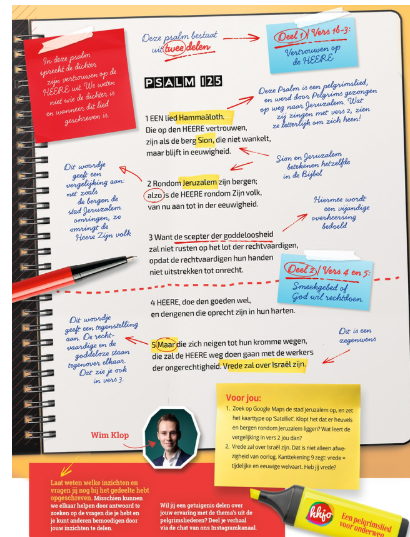 In deze psalm
spreekt de dichter
zijn vertrouwen op de
HEERE uit. We weten
niet wie de dichter is
en wanneer dit lied
geschreven is.
Deze psalm bestaat
uit (twee) delen
Deel 1 / Vers 1-3:
Vertrouwen op
de HEERE
PSALM 125
Deze Psalm is een pelgrimslied,
en werd door Pelgrims gezongen
op weg naar Jeruzalem. Wat
zij zingen met vers 2, zien
ze letterlijk om zich heen!
1 EEN lied Hammaäloth.
Die op den HEERE vertrouwen,
zijn als de berg Sion, die niet wankelt,
maar blijft in eeuwigheid.
Sion en Jeruzalem
betekenen hetzelfde
in de Bijbel
Dit woordje
geeft een
vergelijking aan:
net zoals
de bergen de
stad Jeruzalem
omringen, zo
omringt de
Heere Zijn volk
2 Rondom Jeruzalem zijn bergen;
alzo is de HEERE rondom Zijn volk,
van nu aan tot in der eeuwigheid.
Hiermee wordt
een vijandige
overheersing
bedoeld
3 Want de scepter der goddeloosheid
zal niet rusten op het lot der rechtvaardigen,
opdat de rechtvaardigen hun handen
niet uitstrekken tot onrecht.
Deel 2 / Vers 4 en 5:
Smeekgebed of
God wil rechtdoen
4 HEERE, doe den goeden wel,
en dengenen die oprecht zijn in hun harten.
Dit woordje
geeft een tegenstelling
aan. De recht-
vaardige en de
goddeloze staan
tegenover elkaar.
Dat zie je ook
in vers 3.
5 Maar die zich neigen tot hun kromme wegen,
die zal de HEERE weg doen gaan met de werkers
der ongerechtigheid. Vrede zal over Israël zijn.
Dit is een
zegenwens
Wim Klop
Voor jou:
1. Zoek op Google Maps de stad Jeruzalem op, en zet
het kaarttype op 'Satelliet'. Klopt het dat er heuvels
en bergen rondom Jeruzalem liggen? Wat leert de
vergelijking in vers 2 jou dan?
2. Vrede zal over Israël zijn. Dat is niet alleen afwe-
zigheid van oorlog. Kanttekening 9 zegt: vrede =
tijdelijke en eeuwige welvaart. Heb jij vrede?
Laat weten welke inzichten en
vragen jij nog bij het gedeelte hebt
opgeschreven. Misschien kunnen
we elkaar helpen door antwoord te
zoeken op de vragen die je hebt en
je kunt anderen bemoedigen door
jouw inzichten te delen.
Wil jij een getuigenis delen over
jouw ervaring met de thema's uit de
pelgrimsliederen? Deel je verhaal
via de chat van ons Instagramkanaal.
hhjo
Een pelgrimslied
voor onderweg